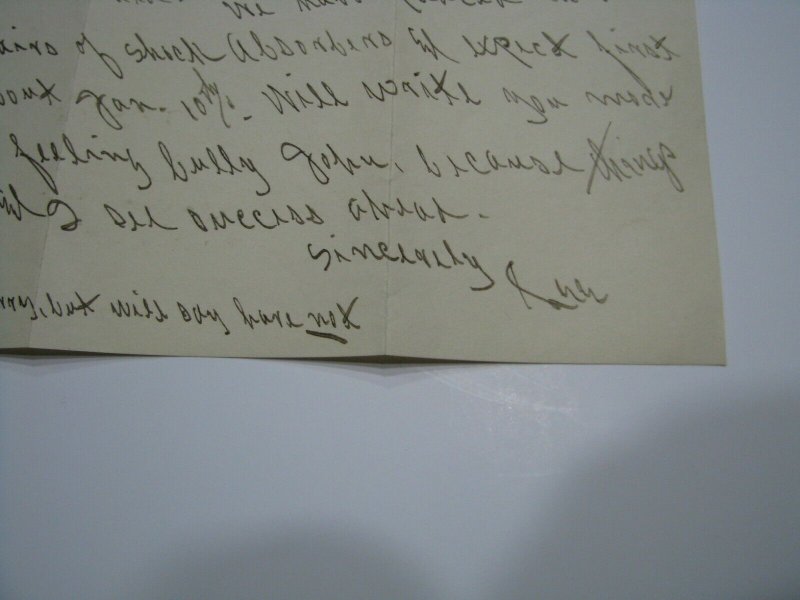 We have
airs of shock Absorbers & expect first
bout Jan. 10th/. Will write you more
feeling bully John, because things
& I see success ahead.
Sincerely
rry, but will say have not